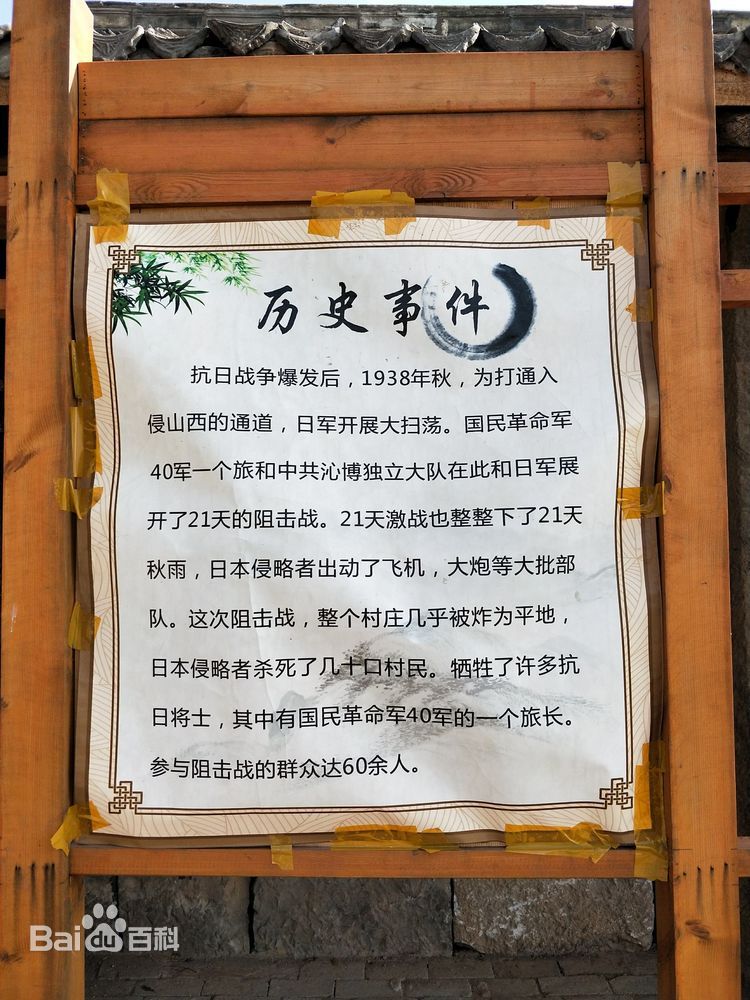 历史事件
抗日战争爆发后，1938年秋，为打通入
侵山西的通道，日军开展大扫荡。国民革命军
40军一个旅和中共沁博独立大队在此和日军展
开了21天的阻击战。21天激战也整整下了21天
秋雨，日本侵略者出动了飞机，大炮等大批部
队。这次阻击战，整个村庄几乎被炸为平地，
日本侵略者杀死了几十口村民。牺牲了许多抗
日将士，其中有国民革命军40军的一个旅长。
参与阻击战的群众达60余人。
Bai du 百科